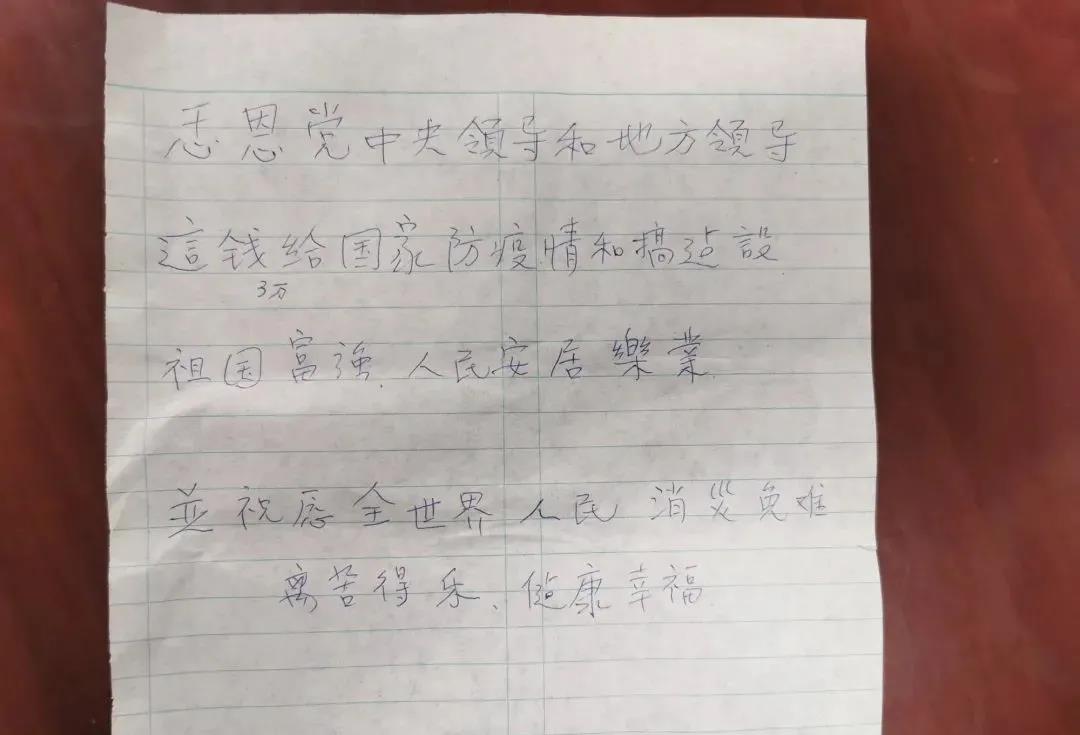 感恩党中央領导和地方領导
這钱给国家防疫情和搞建設
3万
祖国富强.人民安居樂業.
並祝愿全世界人民消災免难
离苦得乐、健康幸福.